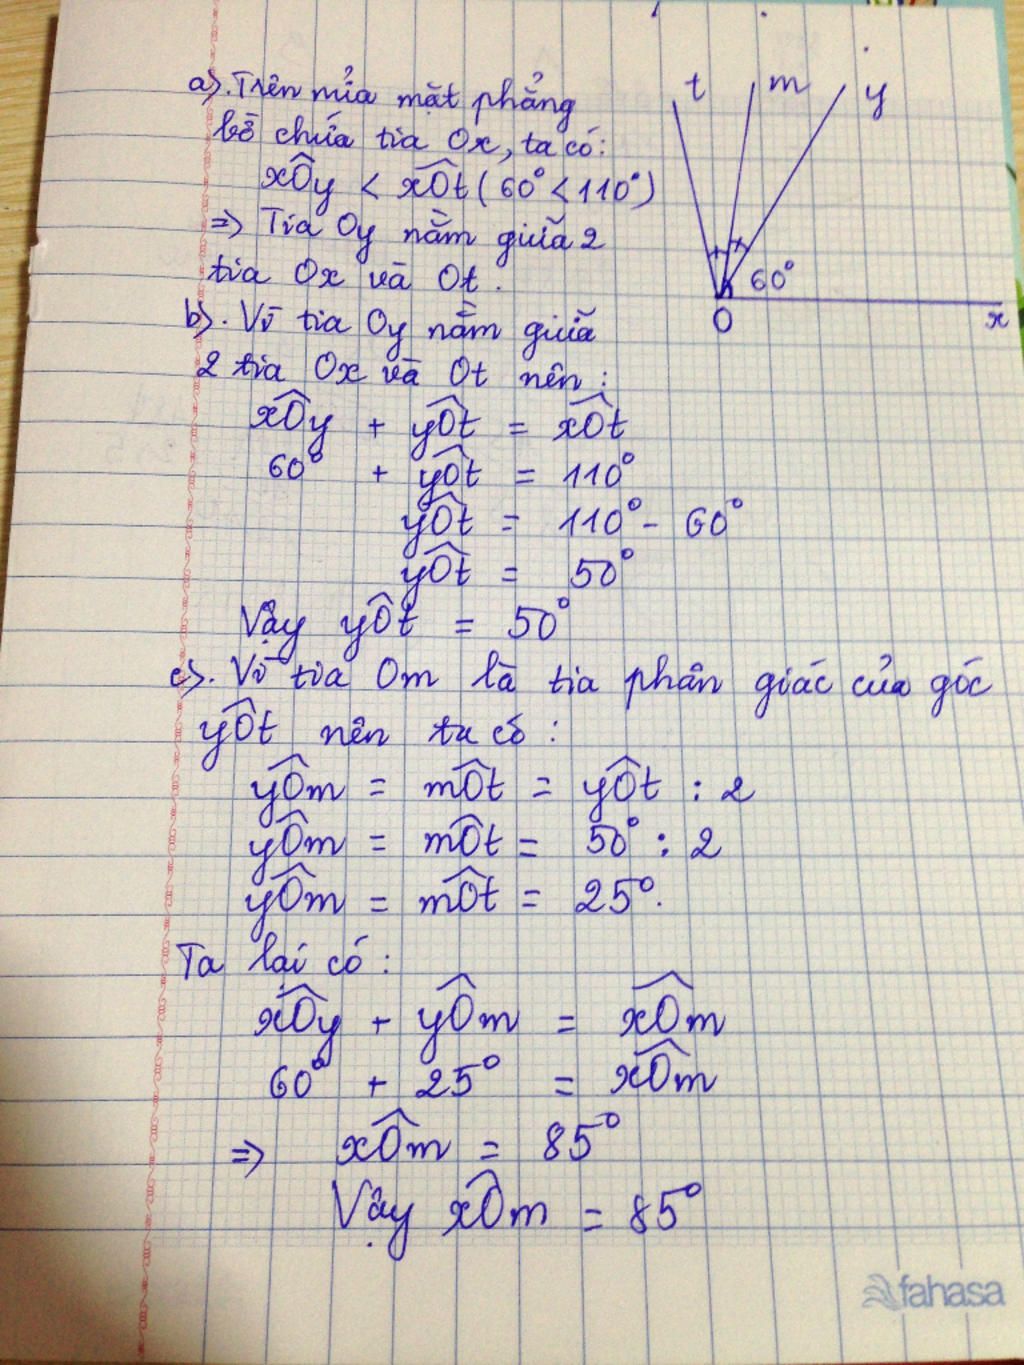 a). Trên nửa mặt phẳng
bờ chứa tia Ox, ta có:
xÔy < xÔt (60° < 110°)
=> Tia Oy nằm giữa 2
tia Ox và Ot.
b). Vì tia Oy nằm giữa
2 tia Ox và Ot nên:
xÔy + yÔt = xÔt
60° + yÔt = 110°
yÔt = 110° - 60°
yÔt = 50°
Vậy yÔt = 50°
c). Vì tia Om là tia phân giác của góc
yÔt nên ta có:
yÔm = mÔt = yÔt : 2
yÔm = mÔt = 50° : 2
yÔm = mÔt = 25°.
Ta lại có:
xÔy + yÔm = xÔm
60° + 25° = xÔm
=> xÔm = 85°
Vậy xÔm = 85°
t m y
60°
O x
fahasa